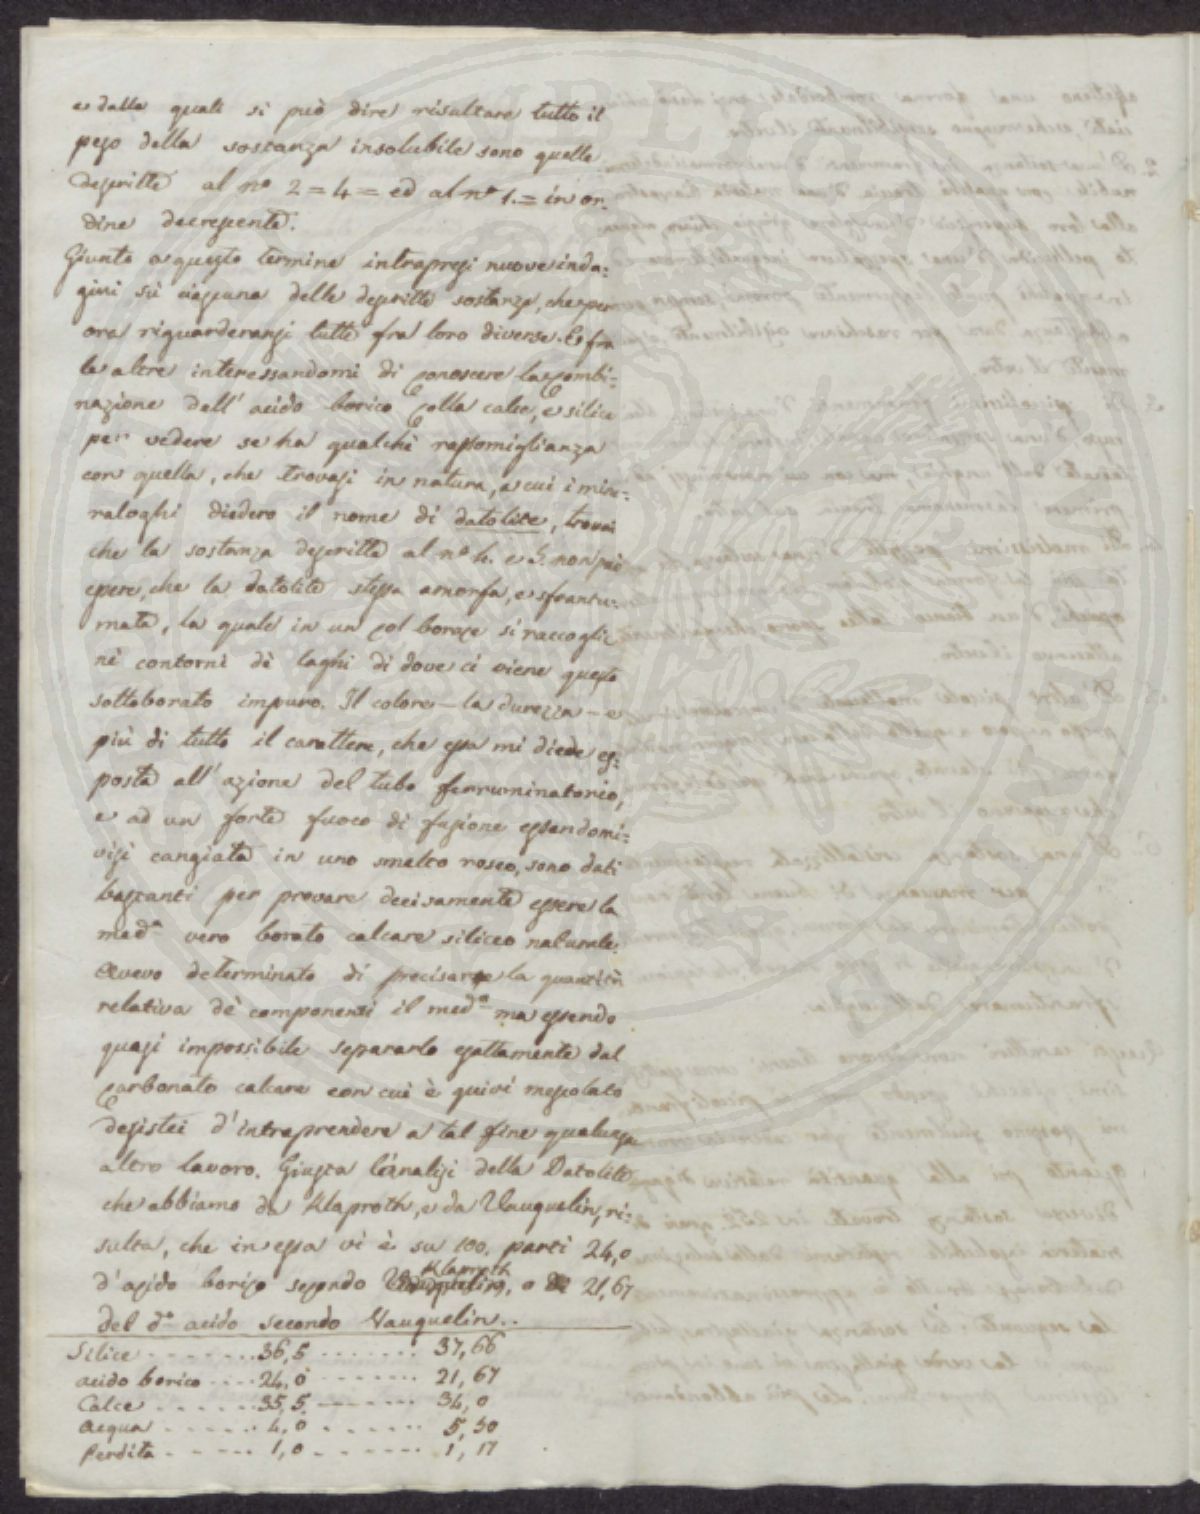 e dalle quali si può dire risultare tutto il
peso della sostanza insolubile sono quelle
descritte al nº 2 = 4 = ed al nº 1. = in or-
dine decrescente.
Giunto a questo termine intrapresi nuove inda=
gini sù ciascuna delle descritte sostanze, che per
ora riguarderansi tutte fra loro diverse. E fra
le altre interessandomi di conoscere la combi=
nazione dell' acido borico colla calce, e silice
per vedere se ha qualche rassomiglianza
con quella, che trovasi in natura, a cui i mine=
raloghi diedero il nome di datolite, trovai
che la sostanza descritta al nº 4. e 5. non può
essere, che la datolite stessa amorfa, e sfrantu=
mata, la quale in un col borace si raccoglie
nè contorni dè laghi di dove ci viene questo
sottoborato impuro. Il colore – la durezza – e
più di tutto il carattere, che essa mi diede es=
posta all' azione del tubo ferruminatorio,
e ad un forte fuoco di fusione essendomi=
visi cangiata in uno smalto roseo, sono dati
bastanti per provare decisamente essere la
medª vero borato calcare siliceo naturale.
Avevo determinato di precisare la quantità
relativa dè componenti il medº ma essendo
quasi impossibile separarlo esattamente dal
carbonato calcare con cui è quivi mescolato
desistei d'intraprendere a tal fine qualunque
altro lavoro. Giusta l'analisi della Datolite
che abbiamo da Klaproth, e da Vauquelin, ri=
sulta, che in essa vi è su 100. parti 24,0
Klaproth
d'acido borico secondo Vauquelin, o 21,67
del dº acido secondo Vauquelin..
Silice - - - - - - - 36,5 - - - - - - - 37,66
acido borico - - - - 24,0 - - - - - - - 21,67
Calce - - - - - - 35,5 - - - - - - 34,0
acqua - - - - - - 4,0 - - - - - - 5,50
Perdita - - - - - - 1,0 - - - - - - 1,17